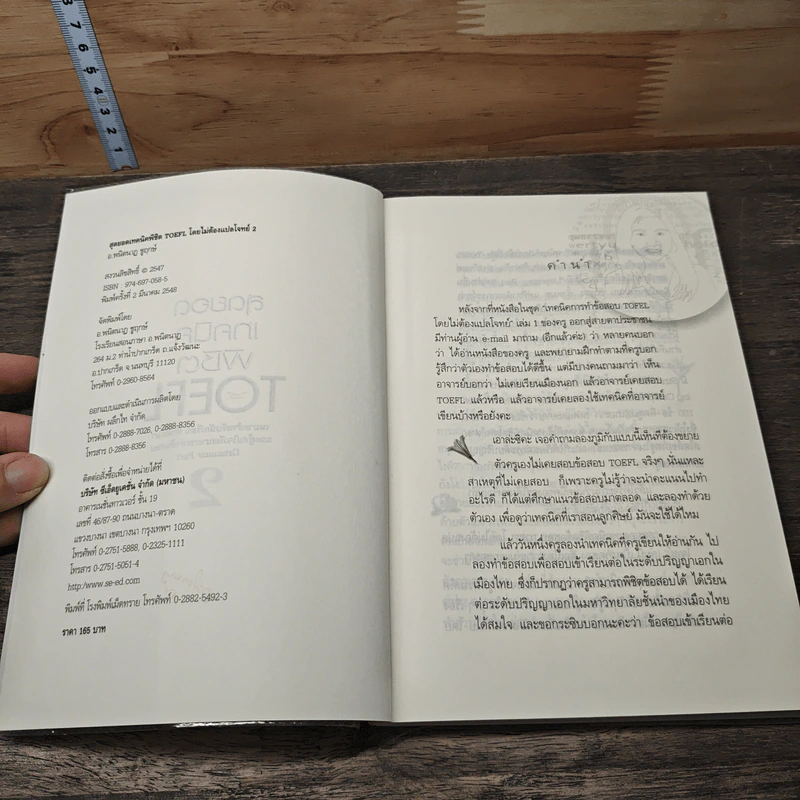 สุดยอดเทคนิคพิชิต TOEFL โดยไม่ต้องแปลโจทย์ 2
อ.พนิตนาฏ ชูฤกษ์
สงวนลิขสิทธิ์ © 2547
ISBN : 974-697-058-5
พิมพ์ครั้งที่ 2 มีนาคม 2548
จัดพิมพ์โดย
อ.พนิตนาฏ ชูฤกษ์
โรงเรียนสอนภาษา อ.พนิตนาฏ
264 ม.2 ท่าน้ำปากเกร็ด ถ.แจ้งวัฒนะ
อ.ปากเกร็ด จ.นนทบุรี 11120
โทรศัพท์ 0-2960-8564
ออกแบบและดำเนินการผลิตโดย
บริษัท ผลึกไท จำกัด
โทรศัพท์ 0-2888-7026, 0-2888-8356
โทรสาร 0-2888-8356
ติดต่อสั่งซื้อเพื่อจำหน่ายได้ที่
บริษัท ซีเอ็ดยูเคชั่น จำกัด (มหาชน)
อาคารเนชั่นทาวเวอร์ ชั้น 19
เลขที่ 46/87-90 ถนนบางนา-ตราด
แขวงบางนา เขตบางนา กรุงเทพฯ 10260
โทรศัพท์ 0-2751-5888, 0-2325-1111
โทรสาร 0-2751-5051-4
http:/www.se-ed.com
พิมพ์ที่ โรงพิมพ์เม็ดทราย โทรศัพท์ 0-2882-5492-3
ราคา 165 บาท
คำนำ
หลังจากที่หนังสือในชุด "เทคนิคการทำข้อสอบ TOEFL
โดยไม่ต้องแปลโจทย์" เล่ม 1 ของครู ออกสู่สายตาประชาชน
มีท่านผู้อ่าน e-mail มาถาม (อีกแล้วค่ะ) ว่า หลายคนบอก
ว่า ได้อ่านหนังสือของครู และพยายามฝึกทำตามที่ครูบอก
รู้สึกว่าตัวเองทำข้อสอบได้ดีขึ้น แต่มีบางคนถามมาว่า เห็น
อาจารย์บอกว่า ไม่เคยเรียนเมืองนอก แล้วอาจารย์เคยสอบ
TOEFL แล้วหรือ แล้วอาจารย์เคยลองใช้เทคนิคที่อาจารย์
เขียนบ้างหรือยังคะ
เอาล่ะซิคะ เจอคำถามลองภูมิกับแบบนี้เห็นทีต้องขยาย
ตัวครูเองไม่เคยสอบข้อสอบ TOEFL จริงๆ นั่นแหละ
สาเหตุที่ไม่เคยสอบ ก็เพราะครูไม่รู้ว่าจะนำคะแนนไปทำ
อะไรดี ก็ได้แต่ศึกษาแนวข้อสอบมาตลอด และลองทำด้วย
ตัวเอง เพื่อดูว่าเทคนิคที่เราสอนลูกศิษย์ มันจะใช้ได้ไหม
แล้ววันหนึ่งครูลองนำเทคนิคที่ครูเขียนให้อ่านกัน ไป
ลองทำข้อสอบเพื่อสอบเข้าเรียนต่อในระดับปริญญาเอกใน
เมืองไทย ซึ่งก็ปรากฏว่าครูสามารถพิชิตข้อสอบได้ ได้เรียน
ต่อระดับปริญญาเอกในมหาวิทยาลัยชั้นนำของเมืองไทย
ได้สมใจ และขอกระซิบบอกนะคะว่า ข้อสอบเข้าเรียนต่อ